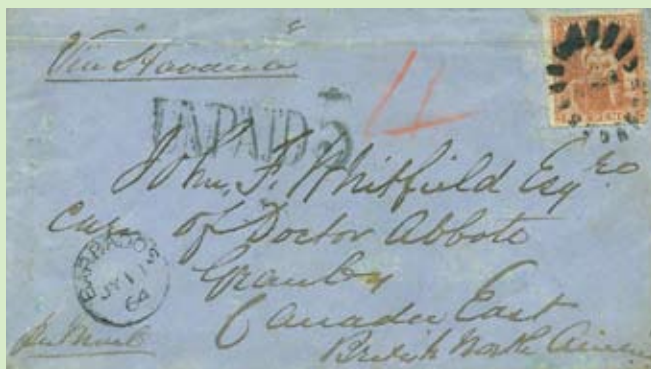 Via "Havana"
UNPAID 5
John. F. Whitfield Esqre
care of Doctor Abbott
Granby
Canada East
British North America
BARBADOS
JY 11
64
Per Mail